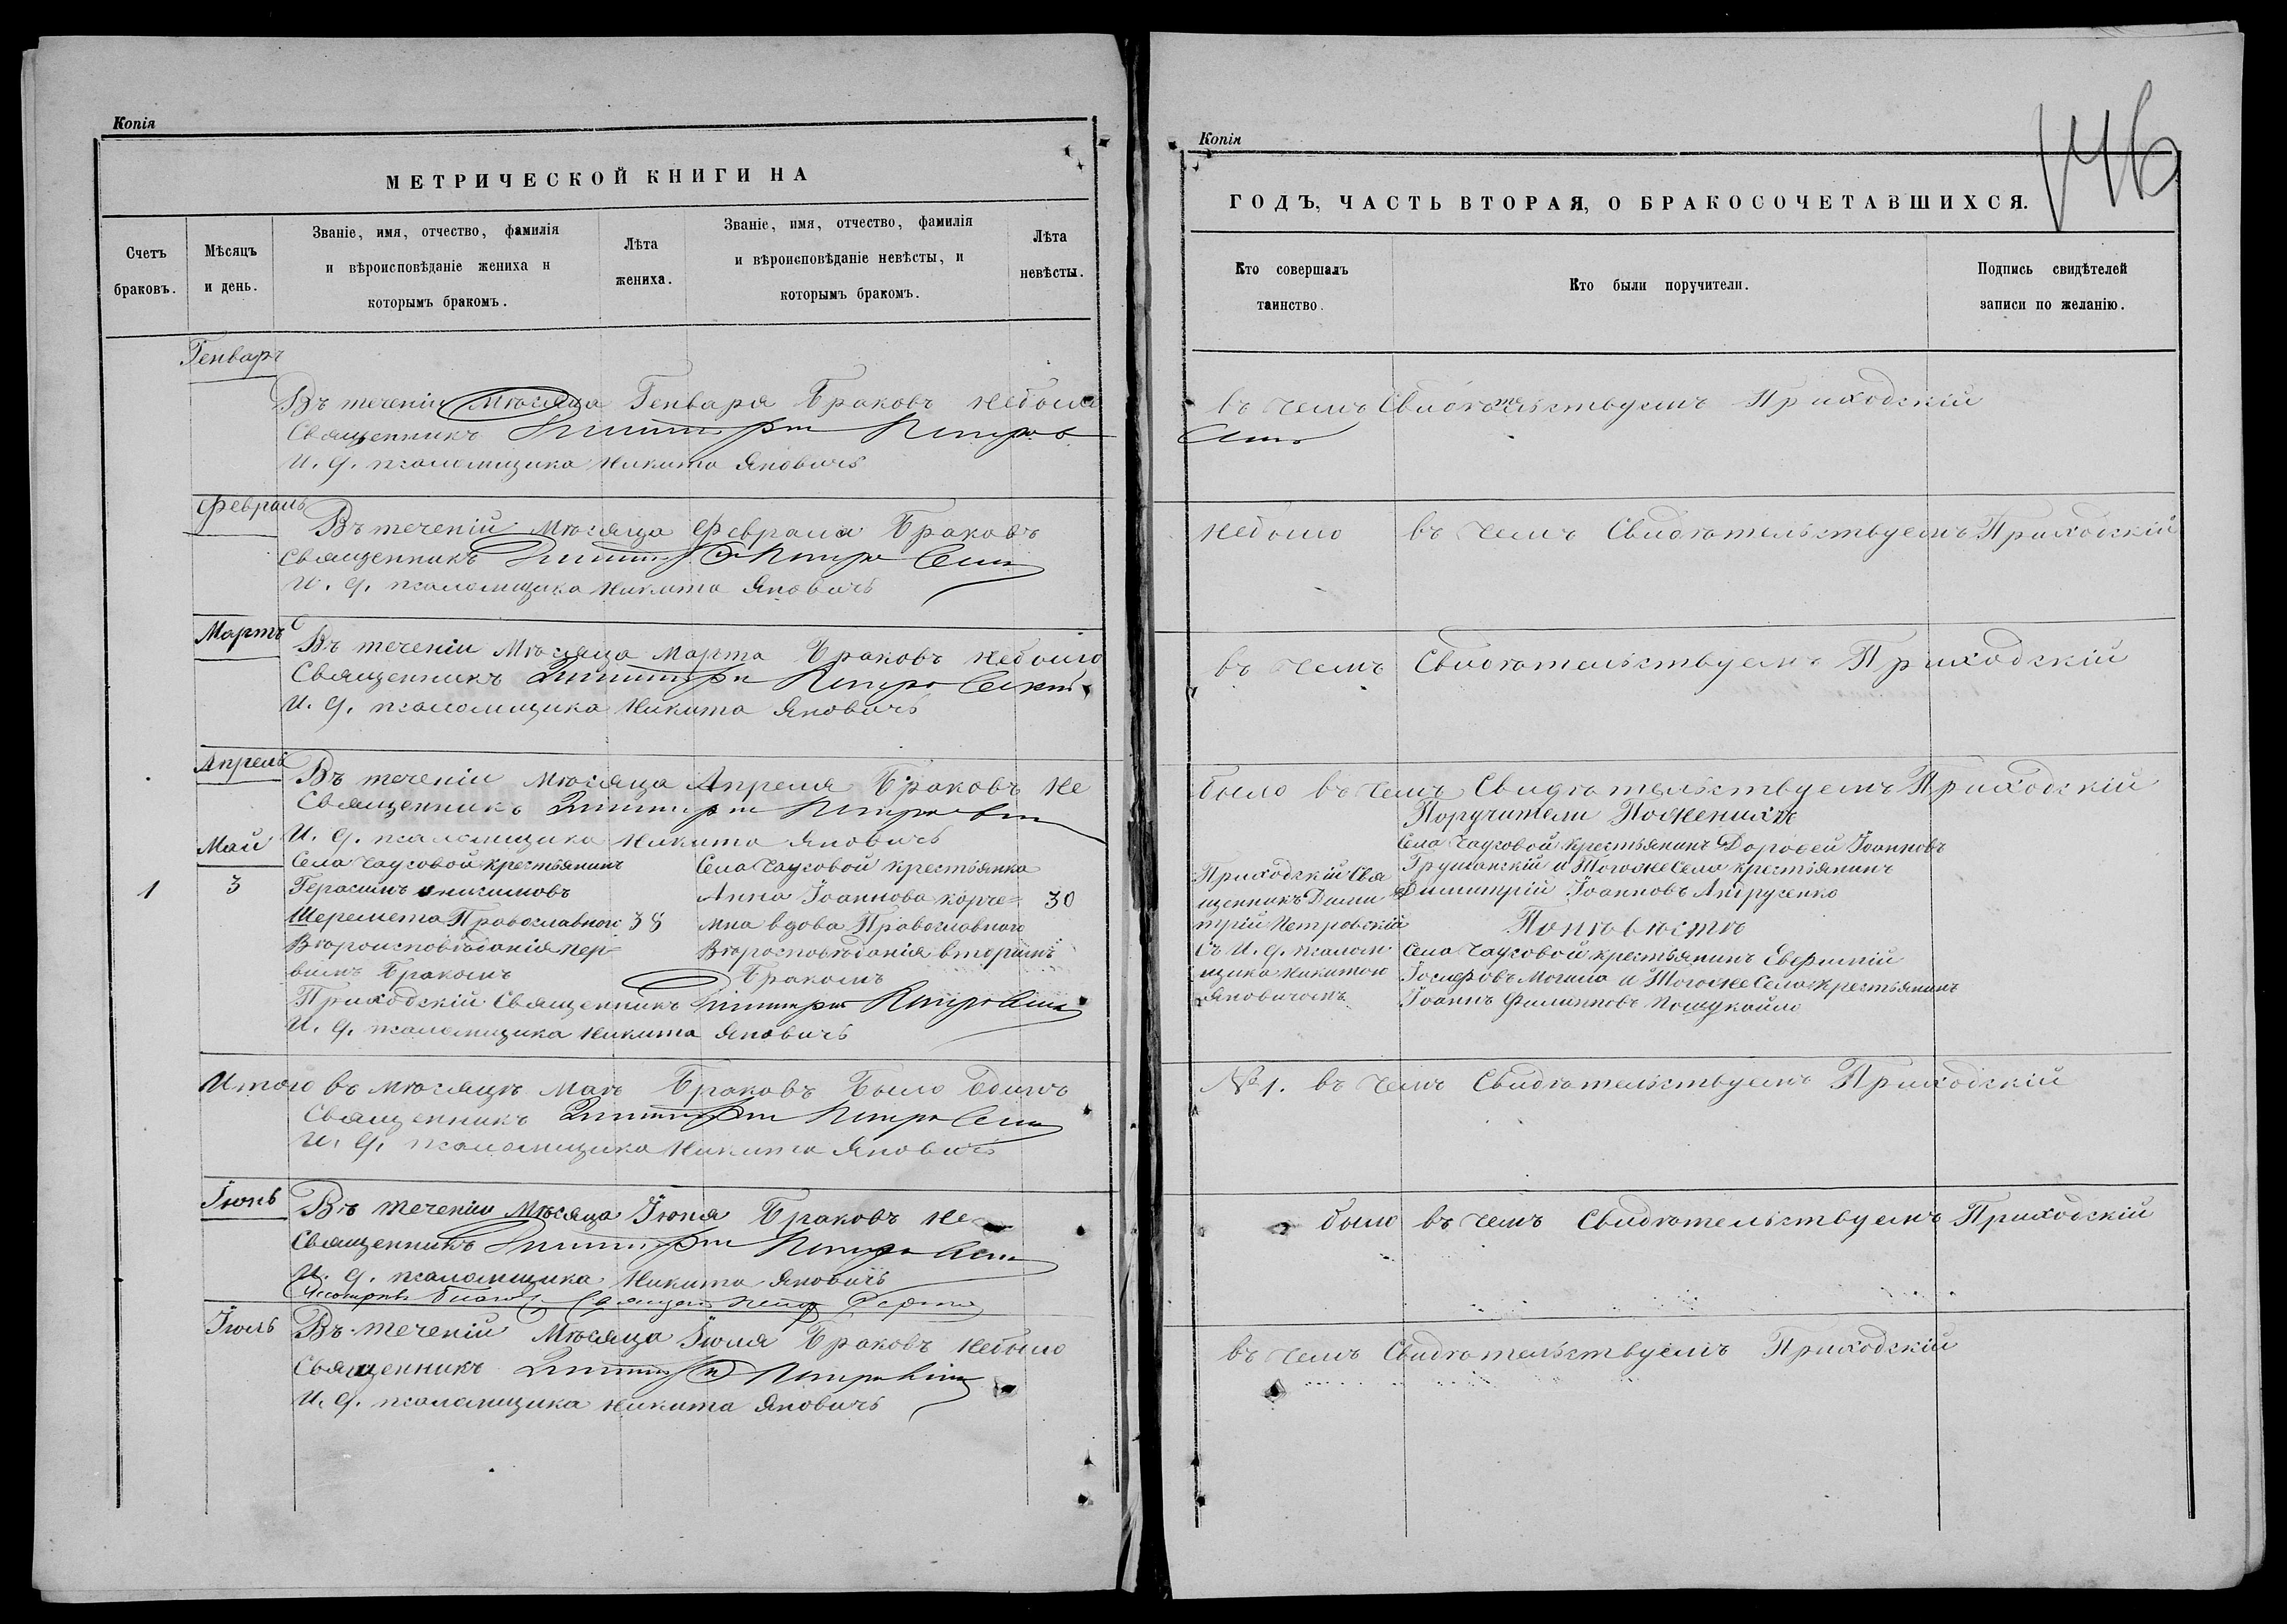 Копія
МЕТРИЧЕСКОЙ КНИГИ НА
Счетъ браковъ.
Мѣсяцъ и день.
Званіе, имя, отчество, фамилія
и вѣроисповѣданіе жениха и
которымъ бракомъ.
Лѣта жениха.
Званіе, имя, отчество, фамилія
и вѣроисповѣданіе невѣсты, и
которымъ бракомъ.
Лѣта невѣсты.
Генварь
Въ теченіи Мѣсяца Генваря Браковъ небыло
Священникъ
И. д. псаломщика Никита Яновичъ
Февраль
Въ теченіи Мѣсяца Февраля Браковъ
Священникъ
И. д. псаломщика Никита Яновичъ
Мартъ
Въ теченіи Мѣсяца Марта Браковъ небыло
Священникъ Димитрій Петровскій
И. д. псаломщика Никита Яновичъ
Апрель
Въ теченіи Мѣсяца Апреля Браковъ не
Священникъ Димитрій Петровскій
И. д. псаломщика Никита Яновичъ
Май
1
3
Села Чаусовой крестьянинъ
Герасимъ Онисимовъ
Шеремета Православного
Вѣроисповѣданія пер-
вымъ Бракомъ
38
Села Чаусовой крестьянка
Анна Іоаннова Корче=
мна вдова Православного
Вѣроисповѣданія вторымъ
Бракомъ
30
Приходскій Священникъ Димитрій Петровскій
И. д. псаломщика Никита Яновичъ
Итого въ мѣсяцѣ Маѣ Браковъ Было Единъ
Священникъ Димитрій Петровскій
И. д. псаломщика Никита Яновичъ
Іюнь
Въ теченіи Мѣсяца Іюня Браковъ не
Священникъ Димитрій Петровскій
И. д. псаломщика Никита Яновичъ
Іюль
Въ теченіи Мѣсяца Іюля Браковъ небыло
Священникъ Димитрій Петровскій
И. д. псаломщика Никита Яновичъ
Копія
146
ГОДЪ, ЧАСТЬ ВТОРАЯ, О БРАКОСОЧЕТАВШИХСЯ.
Кто совершалъ таинство.
Кто были поручители.
Подпись свидѣтелей записи по желанію.
въ чемъ Свидѣтельствуемъ Приходскій
небыло въ чемъ Свидѣтельствуемъ Приходскій
въ чемъ Свидѣтельствуемъ Приходскій
было въ чемъ Свидѣтельствуемъ Приходскій
Приходскій Свя
щенникъ Дими
трій Петровскій
Съ И. д. псалом
щика Никитою
Яновичомъ
Поручители По Женихѣ
Села Чаусовой крестьянинъ Дорофей Іоанновъ
и Тогоже Села крестьянинъ
Димитрій Іоанновъ Андрусенко
По невѣстѣ
Села Чаусовой крестьянинъ Евфимій
Іосифовъ Могила и Тогоже Села крестьянинъ
Іоаннъ Филипповъ
№ 1. въ чемъ Свидѣтельствуемъ Приходскій
было въ чемъ Свидѣтельствуемъ Приходскій
въ чемъ Свидѣтельствуемъ Приходскій